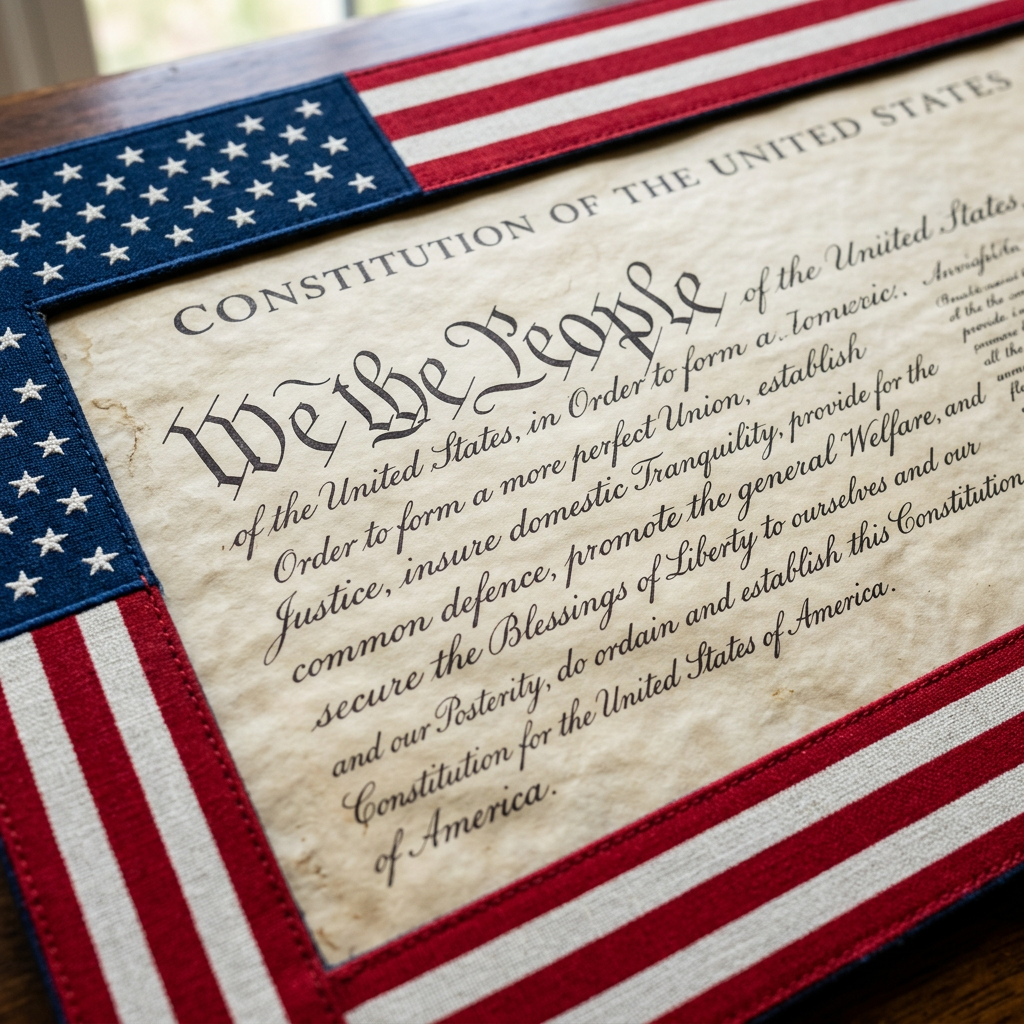 CONSTITUTION OF THE UNITED STATES
We the People of the Uniited States,
of the United States, in Order to form a Tomexic..
Order to form a more perfect Union, establish
Justice, insure domestic Tranquility, provide for the
common defence, promote the general Welfare, and
secure the Blessings of Liberty to ourselves and our
and our Posterity, do ordain and establish this Constitution
Constitution for the United States of America.
of America.
provide
all the